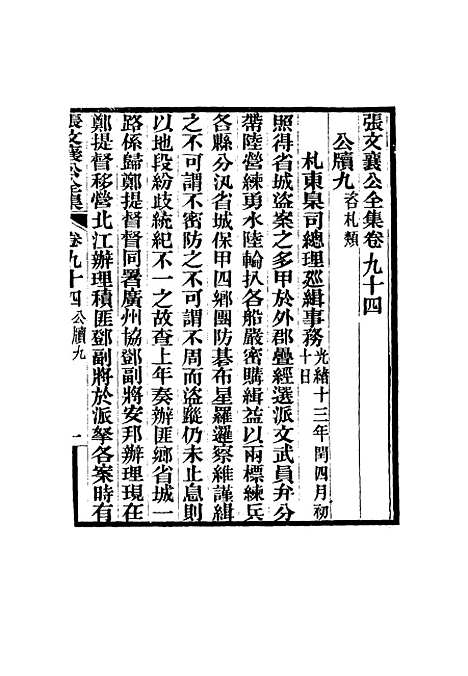 張文襄公全集卷九十四
公牘九 咨札類
札東臬司總理廵緝事務 光緒十三年閏四月初十日
照得省城盜案之多甲於外郡疊經選派文武員弁分
帶陸營練勇水陸輪扒各船嚴密購緝益以兩標練兵
各縣分汛省城保甲四鄉團防碁布星羅邏察維謹緝
之不可謂不密防之不可謂不周而盜蹤仍未止息則
以地段紛歧統紀不一之故查上年奏辦匪鄉省城一
路係歸鄭提督督同署廣州協鄧副將安邦辦理現在
鄭提督移營北江辦理積匪鄧副將於派拏各案時有
張文襄公全集 卷九十四 公牘九 一